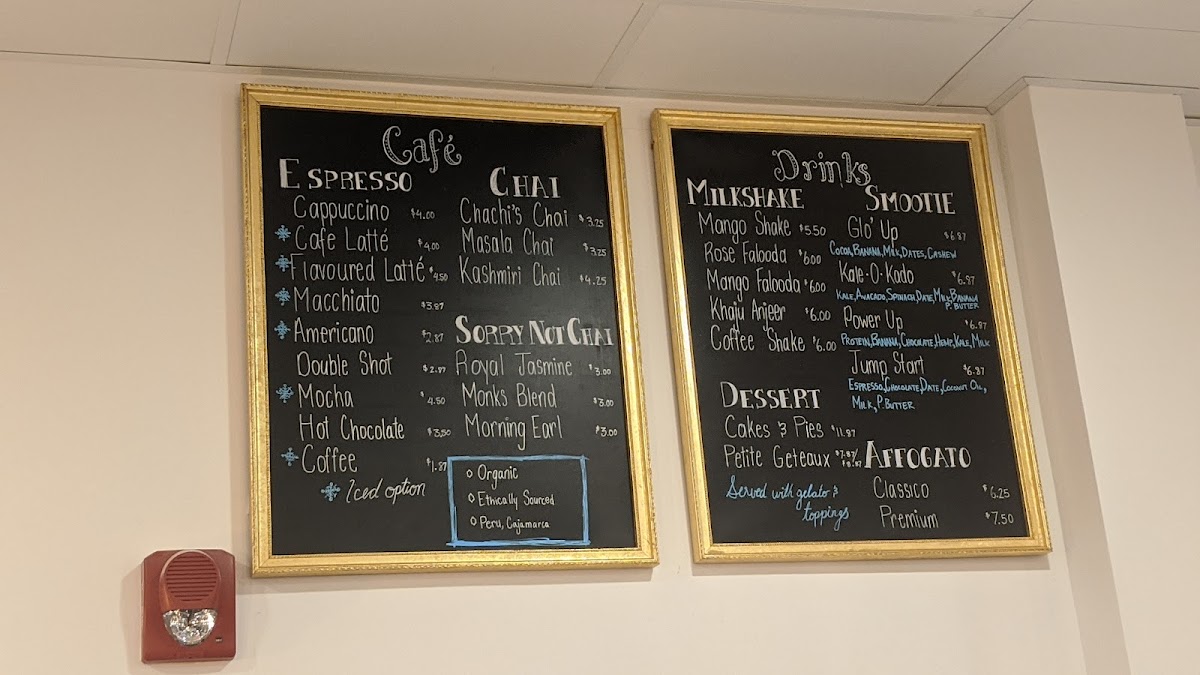 Café
ESPRESSO
Cappuccino $4.00
Cafe Latté $4.00
Flavoured Latté $4.50
Macchiato $3.87
Americano $2.87
Double Shot $2.87
Mocha $4.50
Hot Chocolate $3.50
Coffee $1.87
Iced option
CHAI
Chachi's Chai $3.25
Masala Chai $3.25
Kashmiri Chai $4.25
SORRY NOT CHAI
Royal Jasmine $3.00
Monks Blend $3.00
Morning Earl $3.00
Organic
Ethically Sourced
Peru, Cajamarca
Drinks
MILKSHAKE
Mango Shake $5.50
Rose Falooda $6.00
Mango Falooda $6.00
Khaju Anjeer $6.00
Coffee Shake $6.00
DESSERT
Cakes & Pies $11.87
Petite Geteaux $7.87/
$8.87
Served with gelato &
toppings
SMOOTIE
Glo' Up $6.87
COCOA, BANANA, MILK, DATES, CASHEW
Kale-O-Kado $6.87
KALE, AVACADO, SPINACH, DATE, MILK, BANANA
P. BUTTER
Power Up $6.87
PROTEIN, BANANA, CHOCOLATE, HEMP, KALE, MILK
Jump Start $6.87
ESPRESSO, CHOCOLATE, DATE, COCONUT OIL,
MILK, P. BUTTER
AFFOGATO
Classico $6.25
Premium $7.50